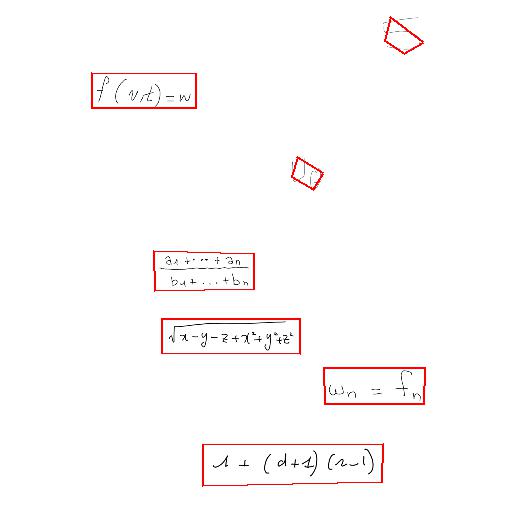 f(v,t)=w
a₁+...+aₙ / b₁+...+bₙ
√x-y-z+x²+y²+z²
wₙ = fₙ
1 + (d+1)(n-1)